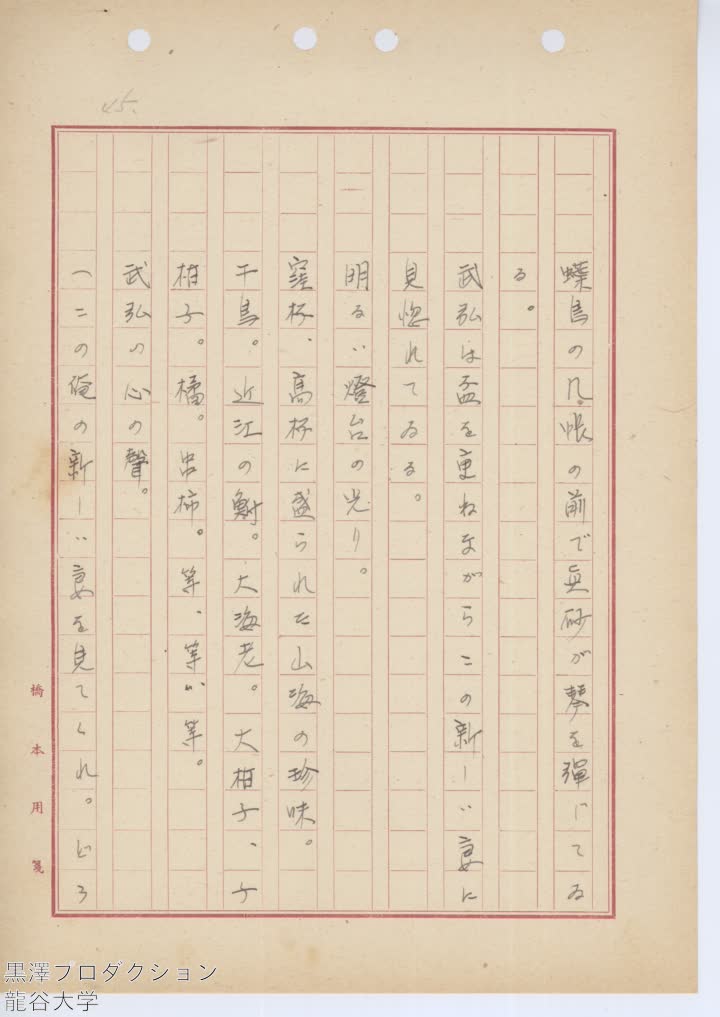 45.
蝶鳥の几帳の前で真砂が琴を弾じてゐ
る。
武弘は盃を重ねながらこの新しい妻に
見惚れてゐる。
明るい燈台の光り。
窪杯、高杯に盛られた山海の珍味。
干鳥。近江の鮒。大海老。大柑子、
柑子。橘。串柿。等、等、等。
武弘の心の聲。
(この俺の新しい妻を見てくれ。どう
橋本用箋
黒澤プロダクション
龍谷大学